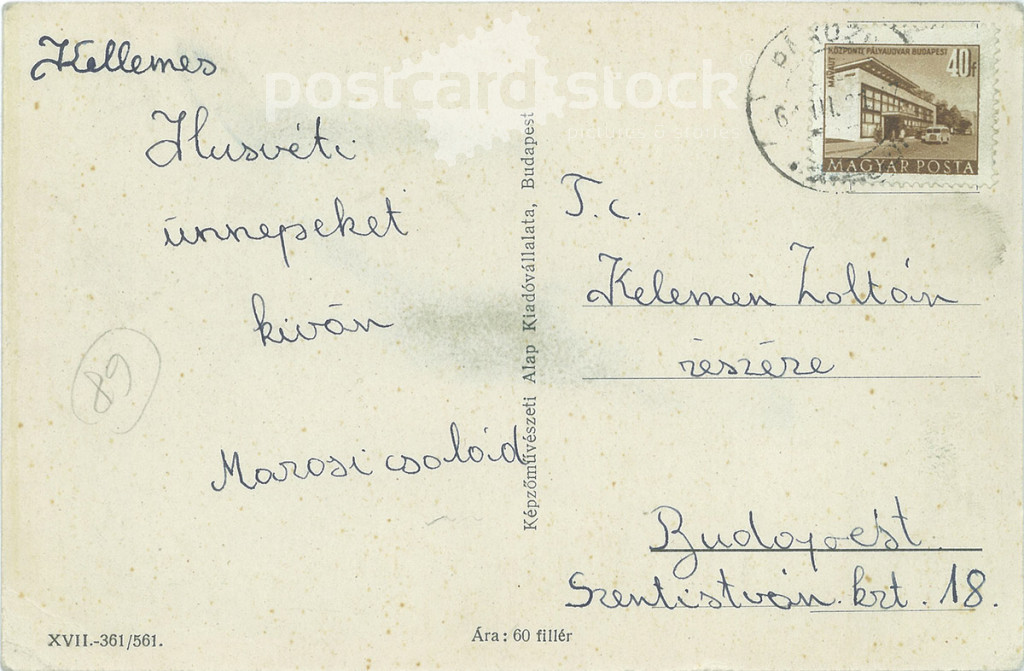 Kellemes
Husvéti
ünnepeket
kiván
Marosi család
89
XVII.-361/561.
Képzőművészeti Alap Kiadóvállalata, Budapest
Ára: 60 fillér
postcard stock
MÁVAUT KÖZPONTI PÁLYAUDVAR BUDAPEST
40f
MAGYAR POSTA
T. c.
Kelemen Zoltán
részére
Budapest
Szentistván krt. 18.